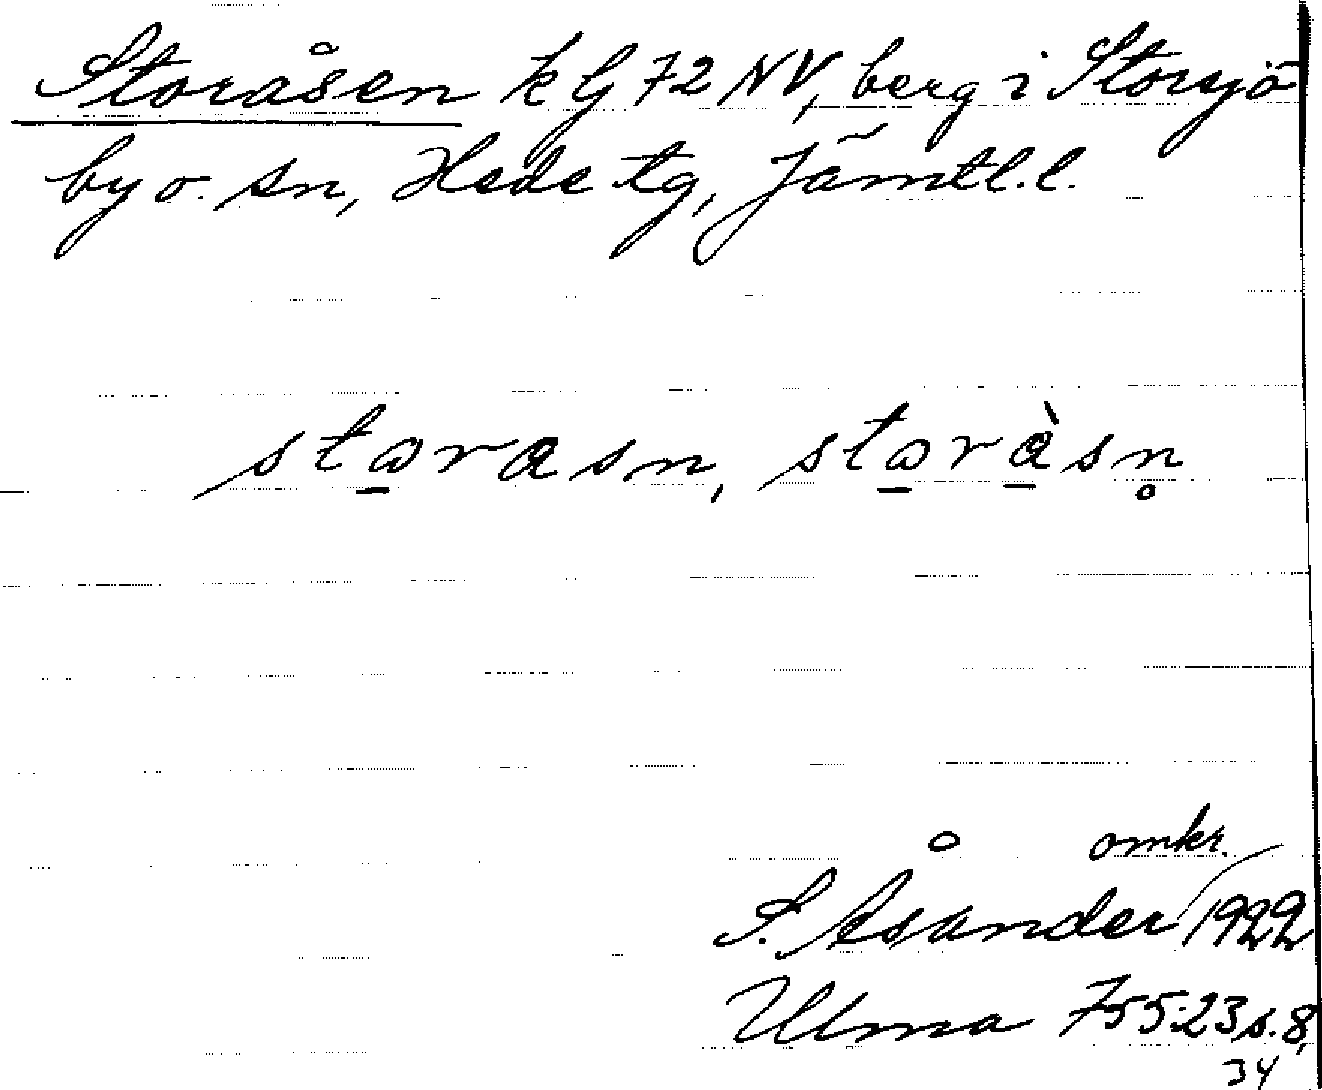 Storåsen k G 72 NV, berg i Storsjö
by o. sn, Hede tg, Jämtl.l.
storasn, storàsn̥
omkr.
S. Åsander 1922
Ulma 755:23 s. 8,
34